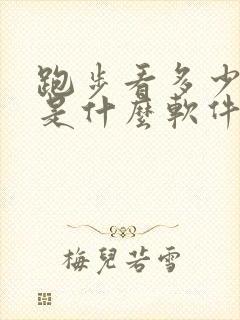 跑步看多少
是什麼軟件
梅兒若雪